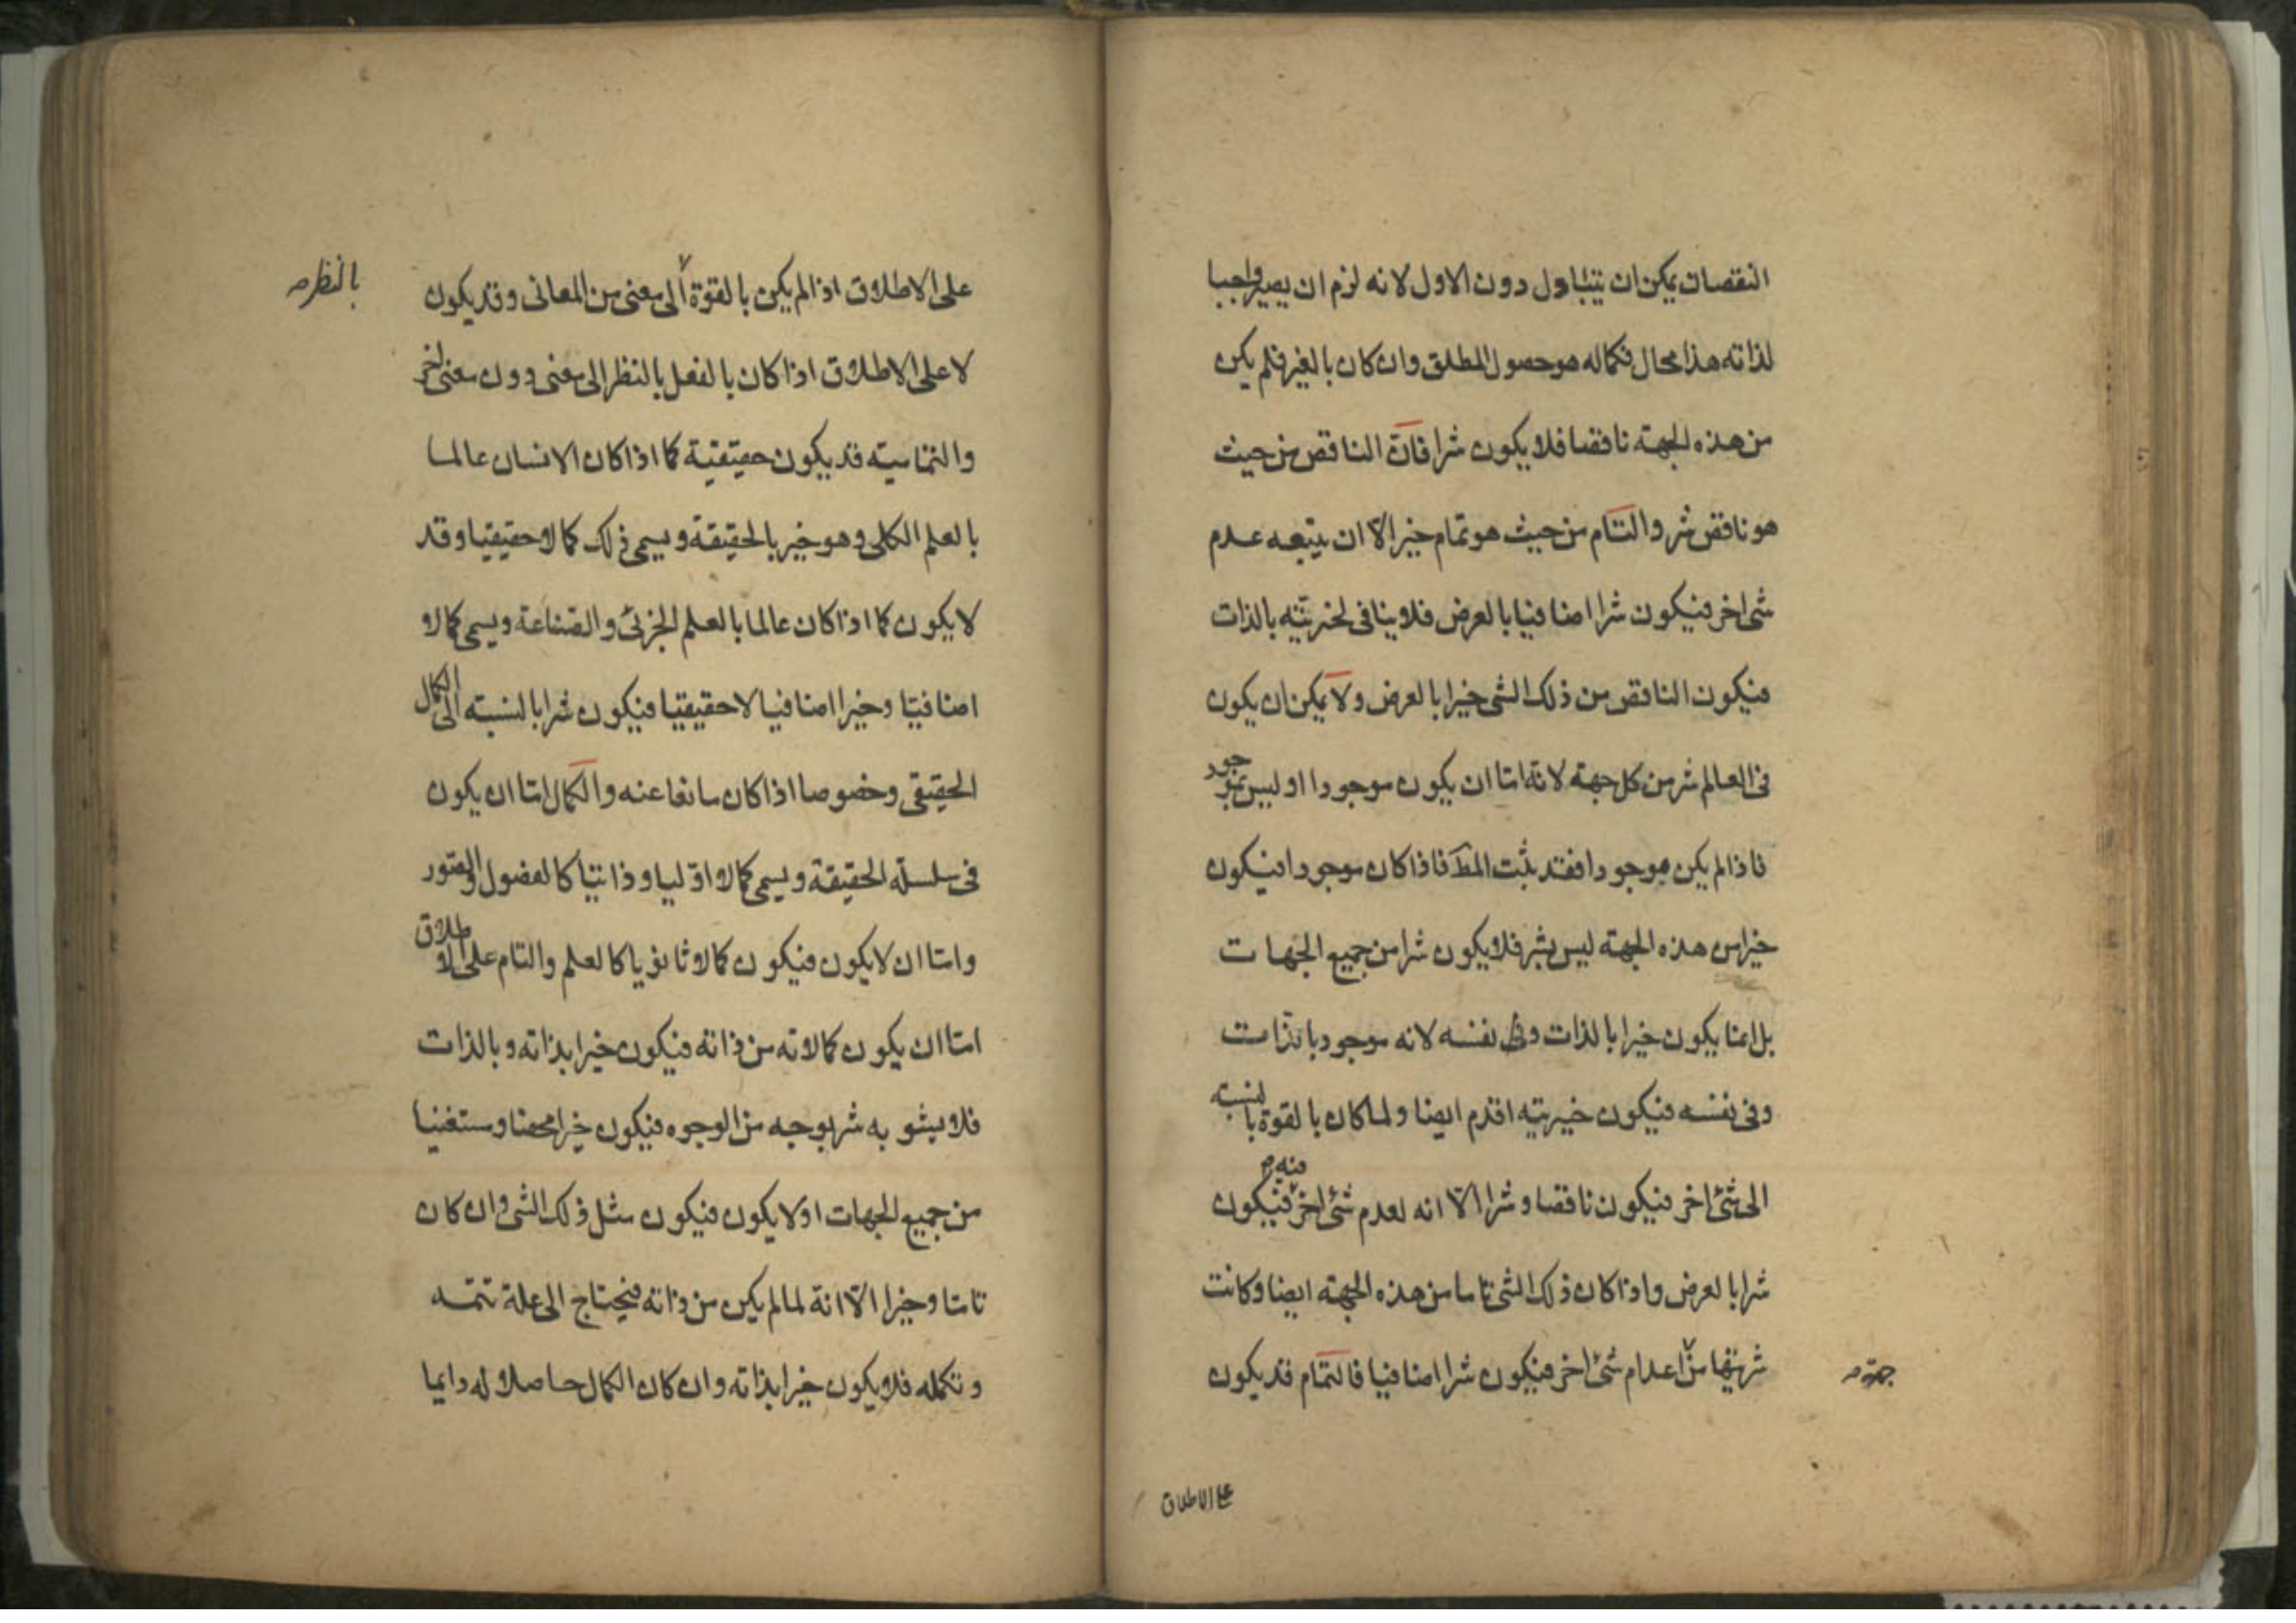 النقصان يمكن ان يتبادل دون الاول لانه لزم ان يصير واجبا
لذاته هذا محال فكماله هو حصول المطلق وان كان بالغير فلم يكن
من هذه الجهته ناقصا فلا يكون شرا فان الناقص من حيث
هو ناقص شر والتام من حيث هو تمام خير الا ان يتبعه عدم
شئ اخر فيكون شرا اضافيا بالعرض فلا ينافى لخيريته بالذات
فيكون الناقص من ذلك الشئ خيرا بالعرض ولا يمكن ان يكون
فى العالم شر من كل جهته لانه اما ان يكون موجودا او ليس بموجود
فاذا لم يكن موجودا فقد يثبت المط فاذا كان موجودا فيكون
خيرا من هذه الجهته ليس بشر فلا يكون شرا من جميع الجهات
بل انما يكون خيرا بالذات وفى نفسه لانه موجود بالذات
وفى نفسه فيكون خيريته اقدم ايضا ولما كان بالقوة بالنسبه
الى شئ اخر فيكون ناقصا وشرا الا انه لعدم شئ اخر منه فيكون
شرا بالعرض واذا كان ذلك الشئ تاما من هذه الجهته ايضا وكانت
شريتها من اعدام شئ اخر فيكون شرا اضافيا فالتمام قد يكون
جهة
على الاطلاق
على الاطلاق اذا لم يكن بالقوة الى معنى من المعانى وقد يكون
بالنظر
لا على الاطلاق اذا كان بالفعل بالنظر الى معنى دون معنى اخر
والتماميته قد يكون حقيقية كما اذا كان الانسان عالما
بالعلم الكلى وهو خير بالحقيقة ويسمى ذلك كمالا حقيقيا وقد
لا يكون كما اذا كان عالما بالعلم الجزئى والصناعة ويسمى كمالا
اضافيا وخيرا اضافيا لا حقيقيا فيكون شرا بالنسبته الى الكمال
الحقيقى وخصوصا اذا كان مانعا عنه والكمال اما ان يكون
فى سلسلة الحقيقة ويسمى كمالا اوليا وذاتيا كالفصول والصور
واما ان لا يكون فيكون كمالا ثانويا كالعلم والتام على الاطلاق
اما ان يكون كمالاته من ذاته فيكون خيرا بذاته وبالذات
فلا يشوبه شر بوجه من الوجوه فيكون خيرا محضا ومستغنيا
من جميع الجهات او لا يكون فيكون مثل ذلك الشئ وان كان
تاما وخيرا الا انه لما لم يكن من ذاته فيحتاج الى علة تتمه
وتكمله فلا يكون خيرا بذاته وان كان الكمال حاصلا له دايما